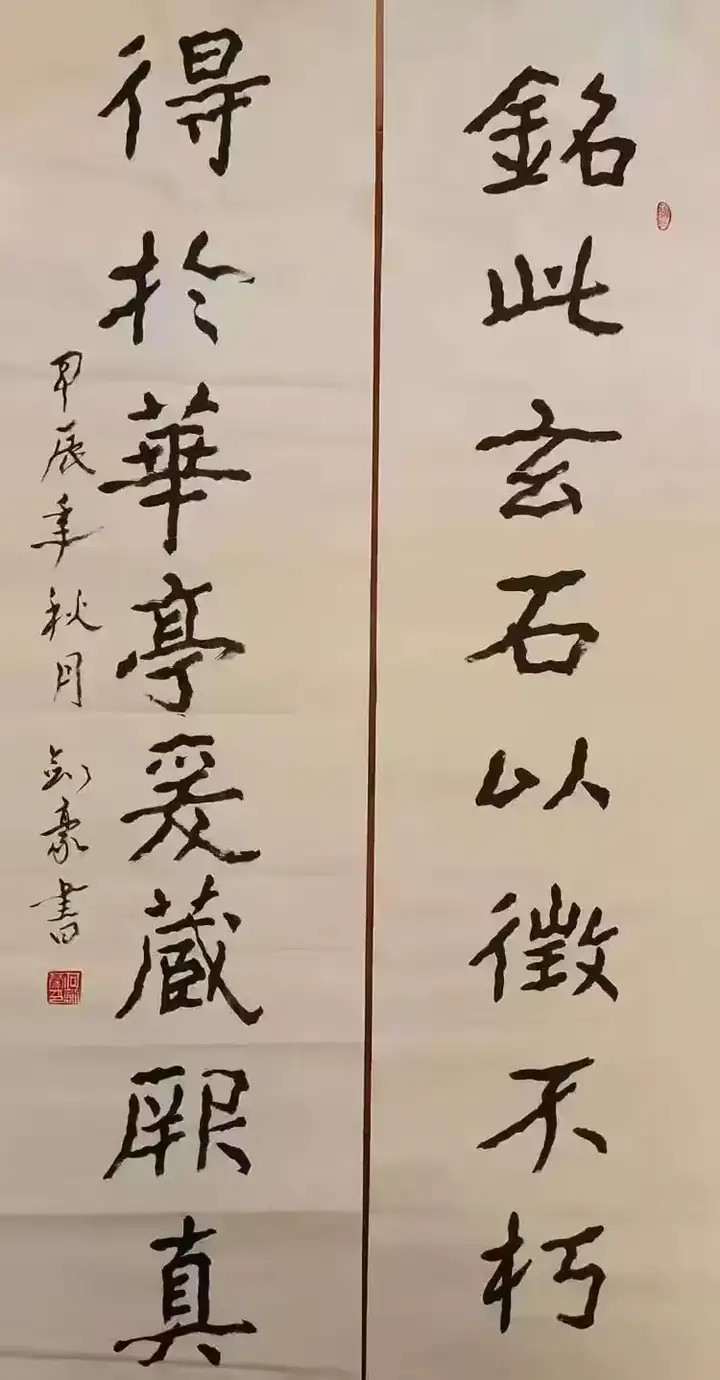 銘此玄石以徵不朽
得於華亭爰蔵厥真
甲辰年秋月 剑豪书